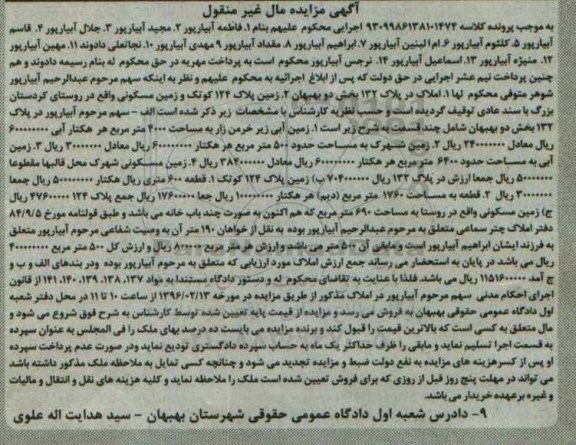 آگهی مزایده مال غیر منقول
به موجب پرونده کلاسه ۹۳۰۹۹۸۶۱۳۸۱۰۱۴۷۴ اجرایی محکوم علیهم بنام ۱. فاطمه آبیارپور ۲. مجید آبیارپور ۳. جلال آبیارپور ۴. قاسم
آبیارپور ۵. کلثوم آبیارپور ۶. ام ا لبنین آبیارپور ۷. ابراهیم آبیارپور ۸. مقداد آبیارپور ۹ مهدی آبیارپور ۱۰. نجاتعلی دادوند ۱۱. مهین آبیارپور
۱۲. منیژه آبیارپور ۱۳. اسماعیل آبیارپور ۱۴. نرجس آبیارپور محکوم است به پرداخت مهریه در حق محکوم له بنام رسیمه دادوند و هم
چنین پرداخت نیم عشر اجرایی در حق دولت که پس از ابلاغ اجرائیه به محکوم علیهم و نظر به اینکه سهم مرحوم عبدالرحیم آبیارپور
شوهر متوفی محکوم لها ۱. املاک در پلاک ۱۳۲ بخش دو بهبهان ۲. زمین پلاک ۱۲۴ کوتک و زمین مسکونی واقع در روستای کردستان
بزرگ با سند عادی توقیف گردیده است و حسب نظریه کارشناس با مشخصات زیر ذکر شده است الف - سهم مرحوم آبیارپور در پلاک
۱۳۲ بخش دو بهبهان شامل چند قسمت به شرح زیر است ۱. زمین آبی زیر خرمن زار به مساحت ۴۰۰۰ متر مربع هر هکتار آبی ۶۰۰۰۰۰۰۰
ریال معادل ۲۴۰۰۰۰۰۰ ریال ۲. زمین شهرک به مساحت حدود ۵۰۰ متر مربع هر هکتار ۶۰۰۰۰۰۰۰ ریال معادل ۳۰۰۰۰۰۰ ریال ۳. زمین
آبی به مساحت حدود ۶۴۰۰ متر مربع هر هکتار ۶۰۰۰۰۰۰۰ ریال معادل ۳۸۴۰۰۰۰۰ ریال ۴. زمین مسکونی شهرک محل قالبها مقطوعا
۵۰۰۰۰۰۰ ریال جمعا ارزش در پلاک ۱۳۲ ریال ۷۰۴۰۰۰۰۰ ب) زمین پلاک ۱۲۴ کوتک ۱. قطعه ۶۰ متری ریال هکتار ۵۰۰۰۰۰۰۰ ریال جمعا
۳۰۰۰۰۰۰ ریال ۲. قطعه به مساحت ۱۷۶۰ متر مربع (دیم) هر هکتار ۱۰۰۰۰۰۰۰ ریال جعا ۱۷۶۰۰۰۰ ریال جمع پلاک ۱۲۴ ۴۷۶۰۰۰۰ ریال
ج) زمین مسکونی واقع در روستا به مساحت ۶۹۰ متر مربع که هم اکنون به صورت چند باب خانه می باشد و طبق قولنامه مورخ ۸۴/۹/۵
دفتر املاک چتر سماعی متعلق به مرحوم عبدالرحیم آبیارپور بوده به نقل از خواهان ۱۹۰ متر آن به وصیت شفاعی مرحوم آبیارپور متعلق
به فرزند ایشان ابراهیم آبیارپور است و مابقی آن ۵۰۰ متر می باشد و ارزش هر متر مربع ۸۰۰۰۰ ریال و ارزش کل ۵۰۰ متر مربع ۴۰۰۰۰۰۰۰
ریال می باشد در پایان به استحضار می رساند جمع ارزش املاک مورد ارزیابی که متعلق به مرحوم آبیارپور بوده ودر بندهای الف و ب و
ج آمد ۱۱۵۱۶۰۰۰۰ ریال می باشد. فلذا با عنایت به تقاضای محکوم له و دستور دادگاه مستندا به مواد ۱۳۷، ۱۳۸، ۱۳۹، ۱۴۰، ۱۴۱ از قانون
اجرای احکام مدنی سهم مرحوم آبیارپور در املاک مذکور از طریق مزایده در مورخه ۱۳۹۶/۰۲/۱۳ از ساعت ۱۰ تا ۱۱ در محل دفتر شعبه
اول دادگاه عمومی حقوقی بهبهان به فروش می رسد و مزایده از قیمت پایه تعیین شده توسط کارشناس به شرح فوق شروع می شود و
مال متعلق به کسی است که بالاترین قیمت را قبول کند و برنده مزایده می بایست ده درصد بهای ملک را فی المجلس به عنوان سپرده
به قسمت اجرا تسلیم نماید و مابقی را ظرف حداکثر یک ماه به حساب سپرده دادگستری تودیع نماید ودر صورت عدم پرداخت سپرده
او پس از کسر هزینه های مزایده به نفع دولت ضبط و مزایده تجدید می شود و چنانچه کسی تمایل به ملاحظه ملک مذکور داشته باشد
می تواند در مهلت پنج روز قبل از روزی که برای فروش تعیین شده است ملک را ملاحظه نماید و کلیه هزینه های نقل و انتقال و مالیات
و غیره برعهده خریدار می باشد.
۹- دادرس شعبه اول دادگاه عمومی حقوقی شهرستان بهبهان - سید هدایت اله علوی